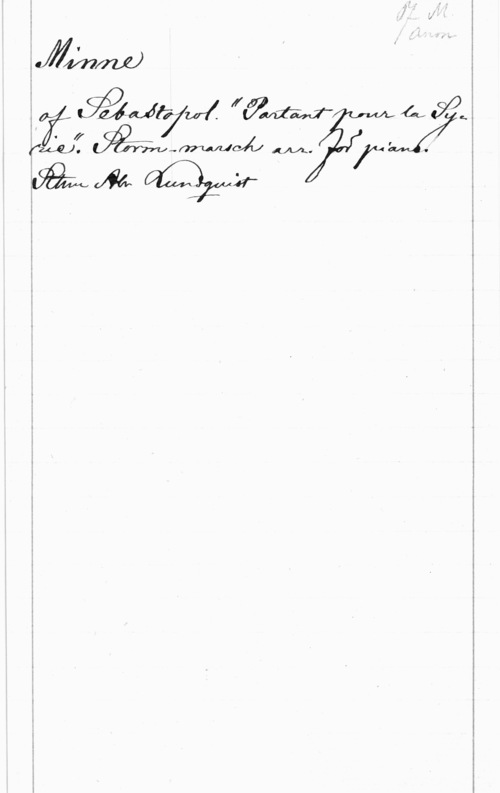 Pf. M.
anon
Minne
af Sebastopol. "Partant pour la Sy-
rie". Storm-marsch arr. för piano.
Sthm Abr Lundquist